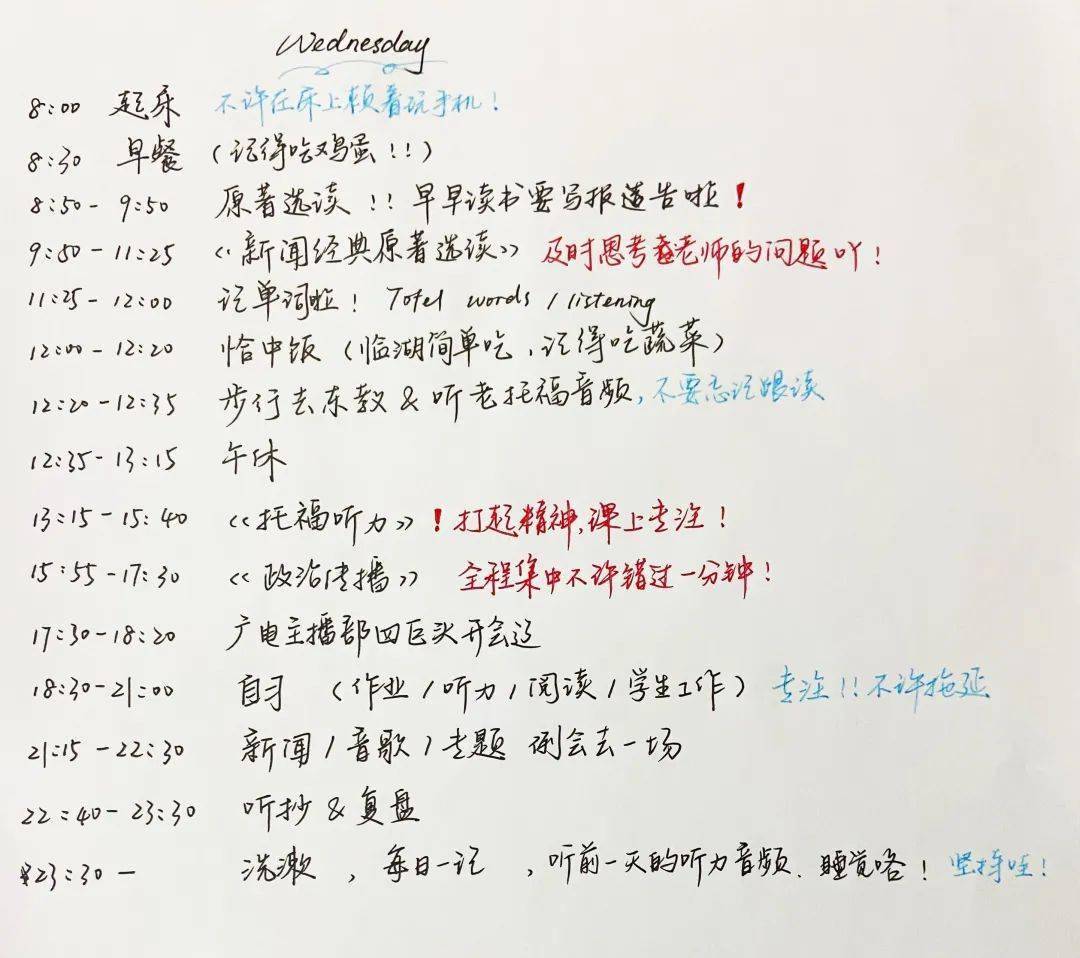 Wednesday
8:00 起床 不许在床上赖着玩手机！
8:30 早餐 （记得吃鸡蛋！！）
8:50 - 9:50 原著选读！！早早读书要写报告啦！
9:50 - 11:25 《新闻经典原著选读》 及时思考老师的问题吖！
11:25 - 12:00 记单词啦！Tofel words / listening
12:00 - 12:20 恰中饭（临湖简单吃，记得吃蔬菜）
12:20 - 12:35 步行去东教 & 听老托福音频，不要忘记跟读
12:35 - 13:15 午休
13:15 - 15:40 《托福听力》！打起精神，课上专注！
15:55 - 17:30 《政治传播》 全程集中不许错过一分钟！
17:30 - 18:20 广电主播部四巨头开会辽
18:30 - 21:00 自习 （作业 / 听力 / 阅读 / 学生工作） 专注！！不许拖延
21:15 - 22:30 新闻 / 音歌 / 专题 例会去一场
22:40 - 23:30 听抄 & 复盘
23:30 - 洗漱 ，每日一记 ，听前一天的听力音频、睡觉咯！坚持哇！